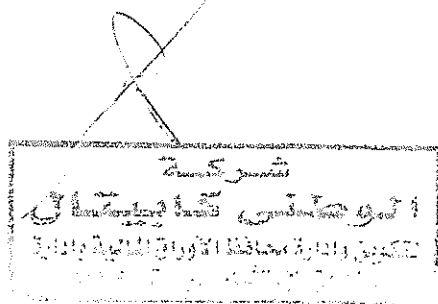 شركة
الوطنى كابيتال
لتكوين وإدارة محافظ الأوراق المالية وإدارة